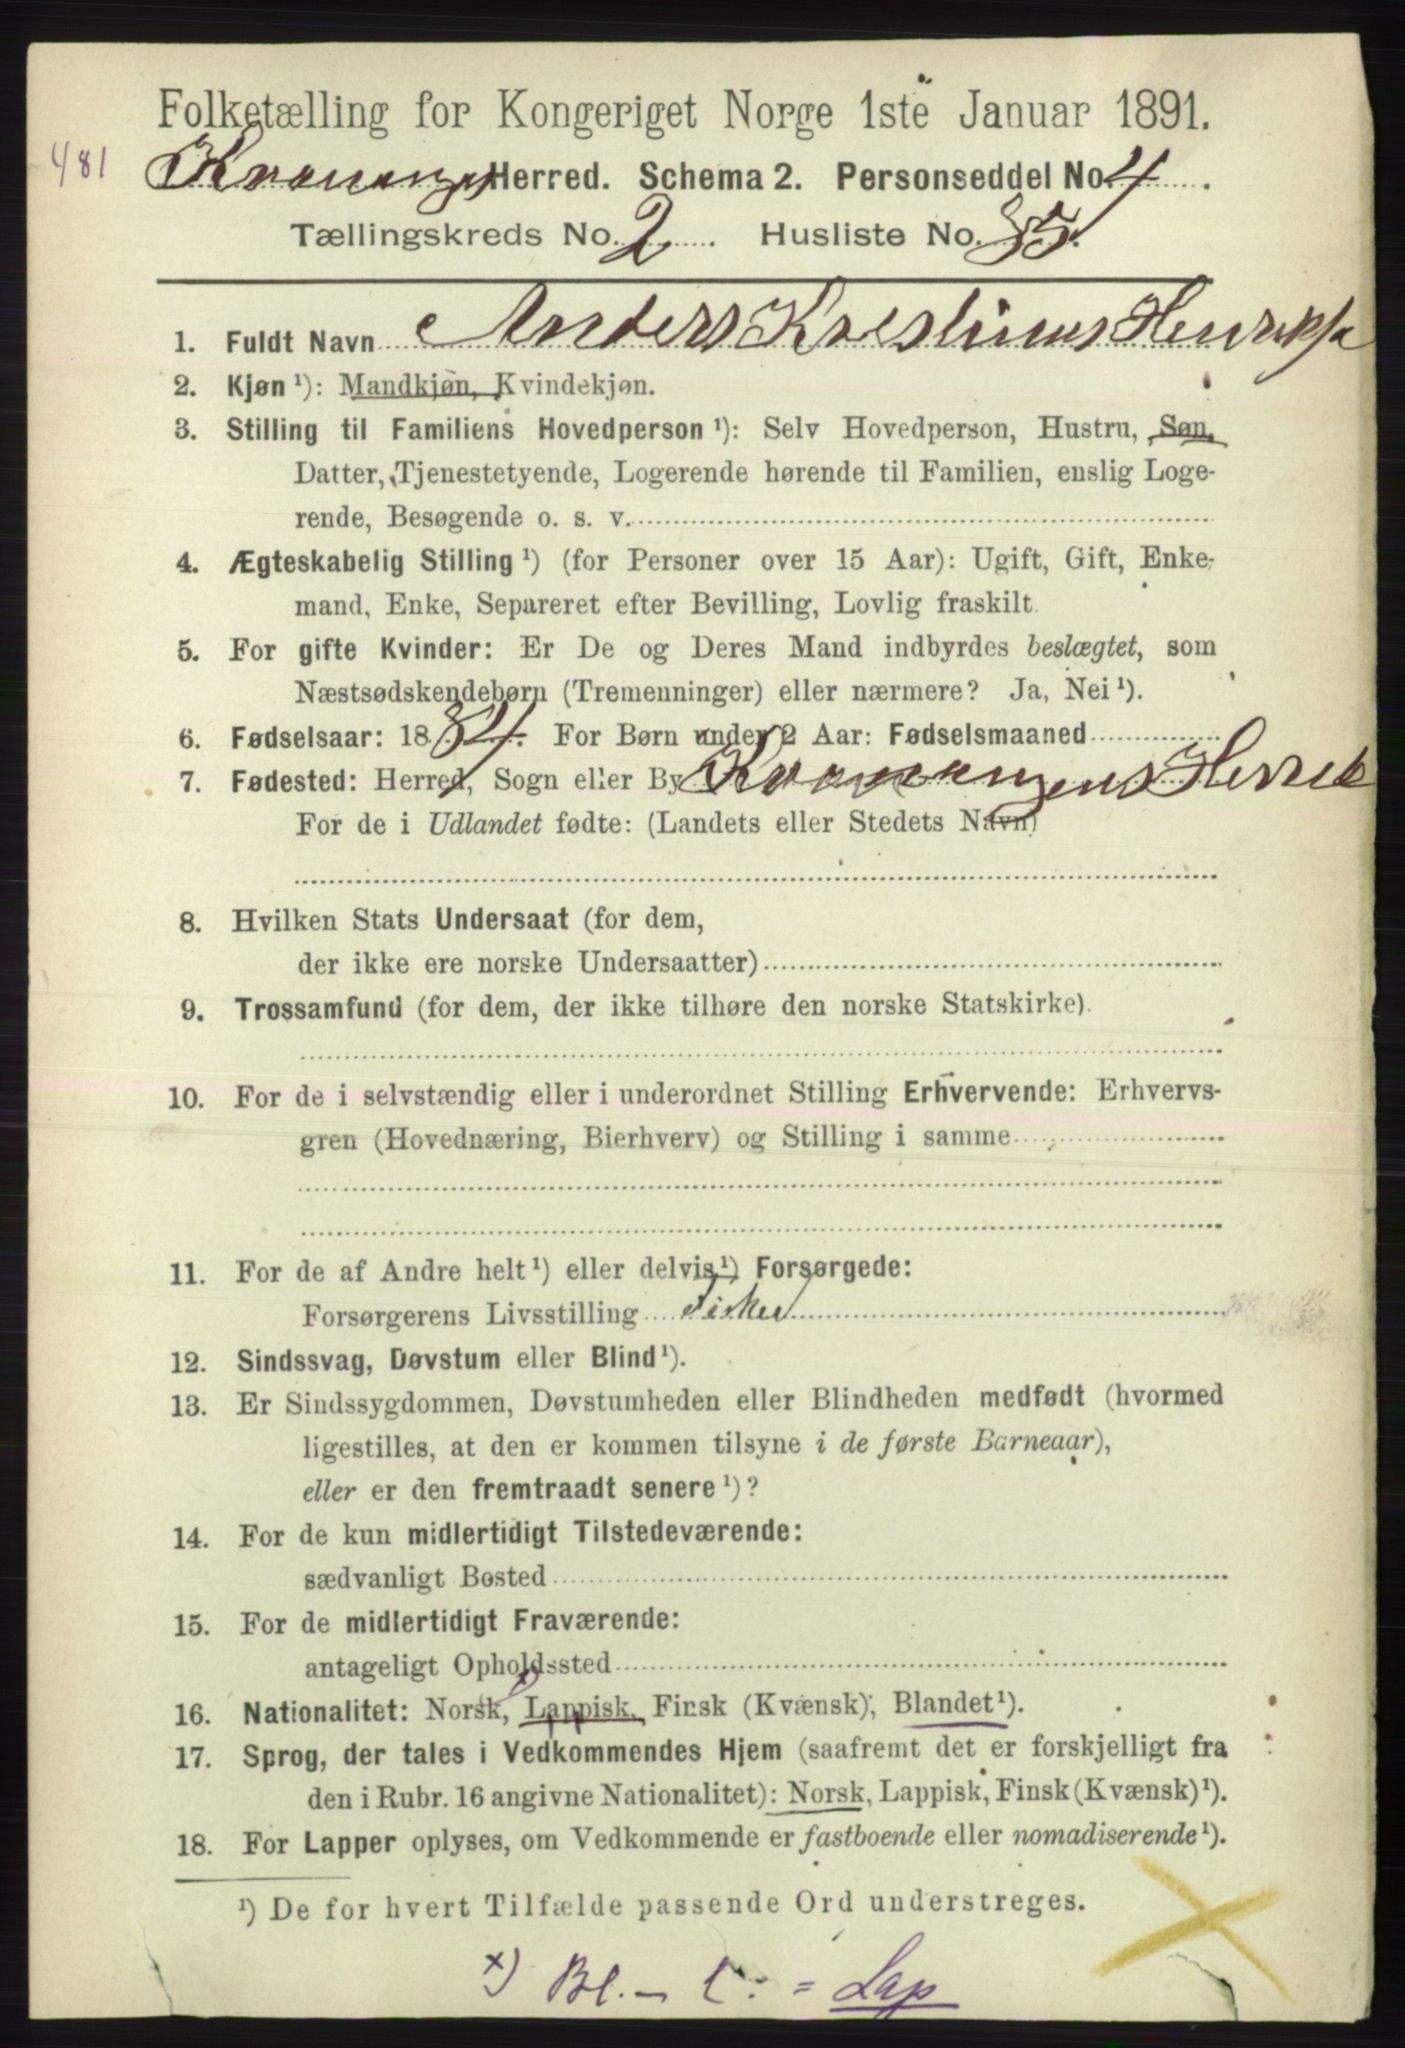 Folketælling for Kongeriget Norge 1ste Januar 1891.
481
Kvænangen Herred. Schema 2. Personseddel No. 4
Tællingskreds No. 2 Husliste No. 35.
1. Fuldt Navn Anders Kristinus Henriks
2. Kjøn ¹): Mandkjøn, Kvindekjøn.
3. Stilling til Familiens Hovedperson ¹): Selv Hovedperson, Hustru, Søn,
Datter, Tjenestetyende, Logerende hørende til Familien, enslig Loge-
rende, Besøgende o. s. v.
4. Ægteskabelig Stilling ¹) (for Personer over 15 Aar): Ugift, Gift, Enke-
mand, Enke, Separeret efter Bevilling, Lovlig fraskilt.
5. For gifte Kvinder: Er De og Deres Mand indbyrdes beslægtet, som
Næstsødskendebørn (Tremenninger) eller nærmere? Ja, Nei ¹).
6. Fødselsaar: 1884. For Børn under 2 Aar: Fødselsmaaned
7. Fødested: Herred, Sogn eller By Kvænangens Herred
For de i Udlandet fødte: (Landets eller Stedets Navn)
8. Hvilken Stats Undersaat (for dem,
der ikke ere norske Undersaatter)
9. Trossamfund (for dem, der ikke tilhøre den norske Statskirke).
10. For de i selvstændig eller i underordnet Stilling Erhvervende: Erhvervs-
gren (Hovednæring, Bierhverv) og Stilling i samme
11. For de af Andre helt ¹) eller delvis ¹) Forsørgede:
Forsørgerens Livsstilling Fisker
12. Sindssvag, Døvstum eller Blind ¹).
13. Er Sindssygdommen, Døvstumheden eller Blindheden medfødt (hvormed
ligestilles, at den er kommen tilsyne i de første Barneaar),
eller er den fremtraadt senere ¹)?
14. For de kun midlertidigt Tilstedeværende:
sædvanligt Bosted
15. For de midlertidigt Fraværende:
antageligt Opholdssted
16. Nationalitet: Norsk, Lappisk, Finsk (Kvænsk), Blandet ¹).
17. Sprog, der tales i Vedkommendes Hjem (saafremt det er forskjelligt fra
den i Rubr. 16 angivne Nationalitet): Norsk, Lappisk, Finsk (Kvænsk) ¹).
18. For Lapper oplyses, om Vedkommende er fastboende eller nomadiserende ¹).
¹) De for hvert Tilfælde passende Ord understreges.
x) Bl. – L. = Lap